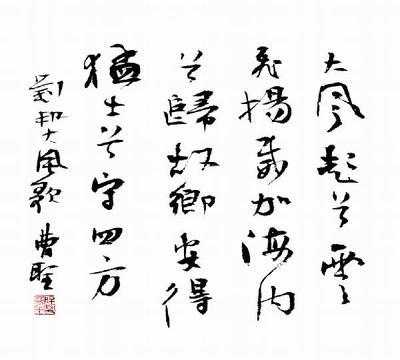 大風起兮雲
飛揚威加海內
兮歸故鄉安得
猛士兮守四方
劉邦大風歌 曹